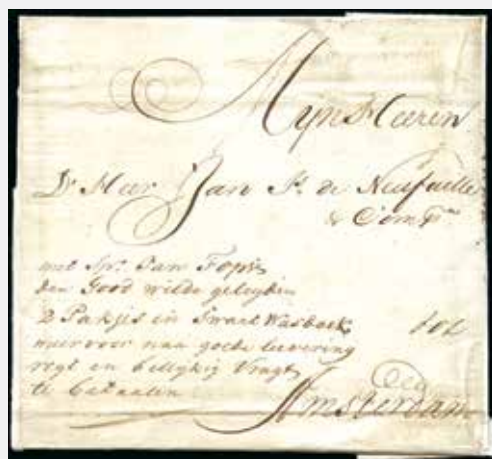 Mijn Heeren
Dr Heer Jan Is. de Neufville
& Compm
met Spr. Jan Fopis
den Good wilde geleyden
2 Pakjes in Swart Wasdoek
waervoor naa goede leevering
regt en billykig Vragt
te betaalen
tot
Amsterdam